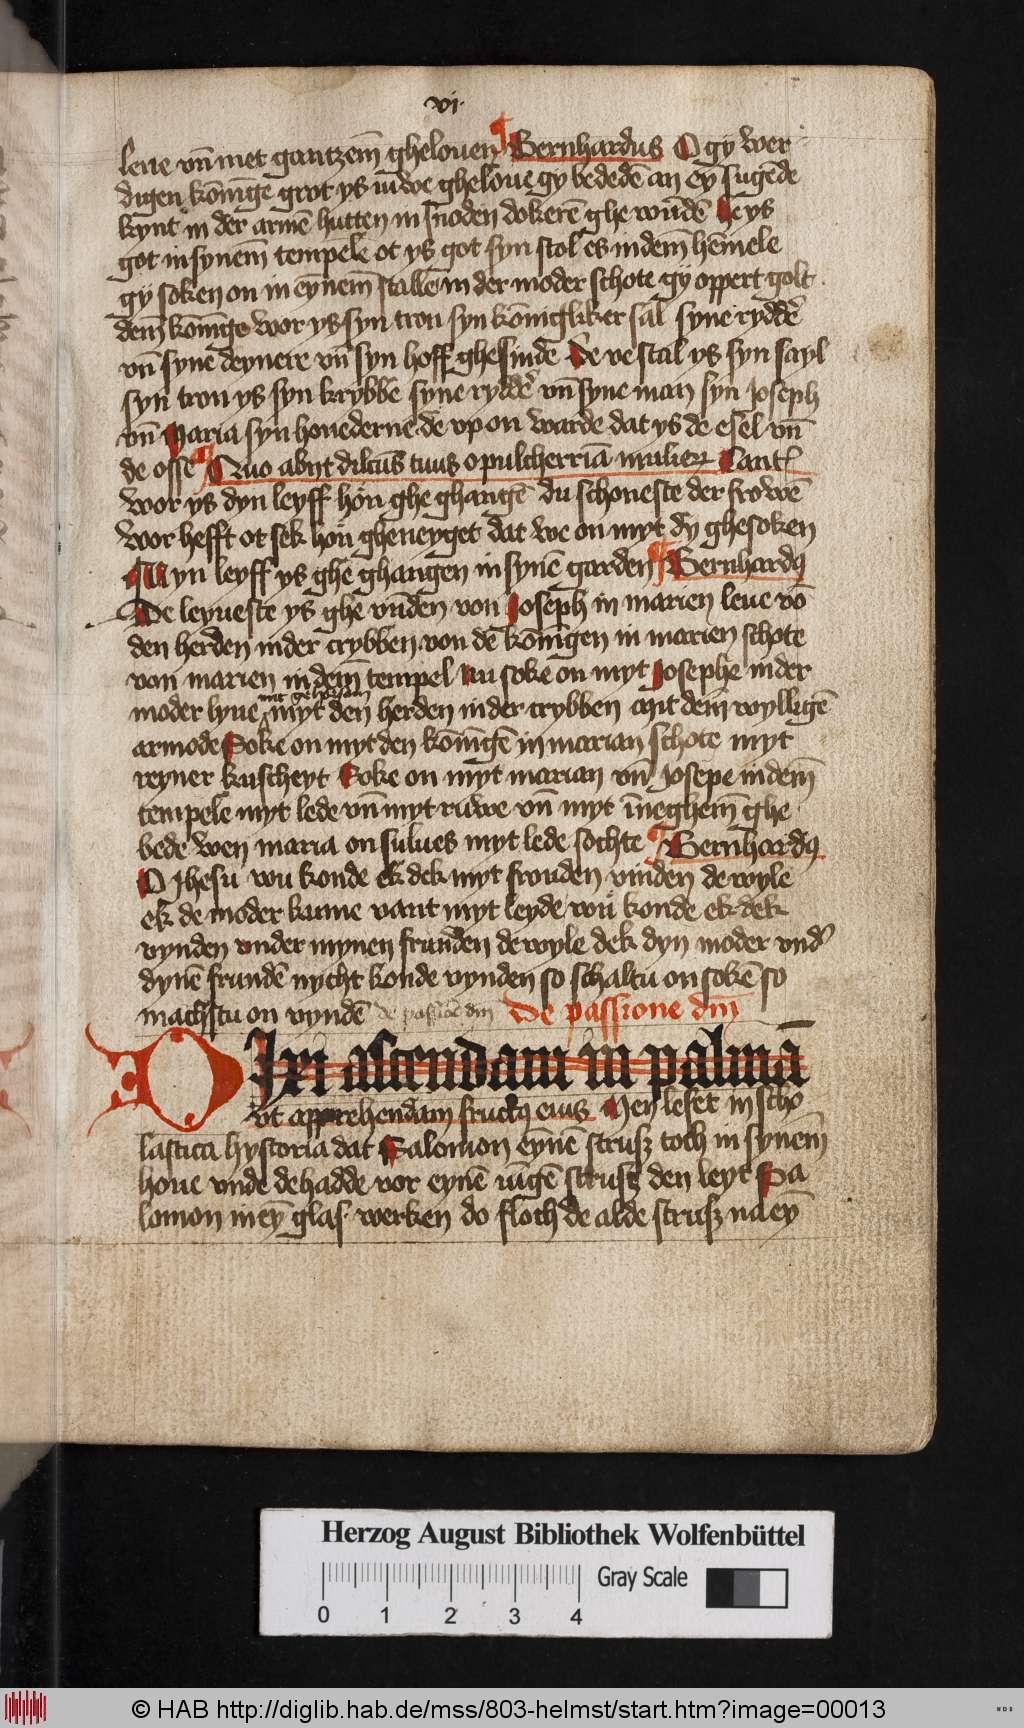 vi·
leue vn̄ met gantzem̄ ghelouen ¶ Bernhardus O gy wer
digen kōnīge grot ys iuwe ghelōue gy bededē an ey sugēde
kynt in der armē hutten in snoden dokerē ghe wūdē He ys
got in synem̄ tempele ot ys got syn stol es in dem̄ hēmele
gy soken on in eynem̄ stalle in der moder schote gy oppert golt
dem̄ kōnīge wor ys syn tron syn kōnīgliker sal syne ryddē
vn̄ syne deynere vn̄ syn hoff ghesinde De ve stal ys syn sayl
syn tron ys syn krybbe syne ryddē vn̄ syne man syn Joseph
vn̄ Maria syn houederne de vp on warde dat ys de esel vn̄
de osse ¶ Quo abyt dilcūs tuus o pulcherriā mulier Cant
wor ys dyn leyff hōn ghe ghangē du schoneste der frowē
wor hefft ot sek hōn gheneyget dat we on myt dy ghesoken
Myn leyff ys ghe ghangen in synē garden ¶ Bernhardꝯ
De leyueste ys ghe vūden von Joseph in marien leue vō
den herden in der crybben von dē kōnīgen in marien schote
von marien in dem̄ tempel Nu soke on myt Josephe in der
mit gehorsam
moder lyue myt den herden in der crybben mit dem̄ wylligē
armode Soke on myt den kōnīgē in marian schote myt
reyner kuscheyt Soke on myt marian vn̄ Josepe in dem̄
tempele myt lede vn̄ myt ruwe vn̄ myt īneghem̄ ghe
bede wen maria on sulues myt lede sochte ¶ Bernhardꝯ
O Jhesu wu konde ek dek myt frouden vinden de wyle
ek de moder kume vant myt leyde wu konde ek dek
vynden vnder mynen frunden de wyle dek dyn moder vnd
dynē frundē nycht konde vynden so schaltu on sokē so
machstu on vyndē de passiōe dm̄ De passione dm̄
DIxi ascendam in palmā
vt apprehendam fructꝯ eius Men leset in scho
lastica hystoria dat Salomon eynē strusz toch in synem̄
houe vnde de hadde vor eynē iūgē strusz den leyt Sa
lomon in ey glas werken do floch de alde strusz na ey
Herzog August Bibliothek Wolfenbüttel
Gray Scale
0 1 2 3 4
© HAB http://diglib.hab.de/mss/803-helmst/start.htm?image=00013